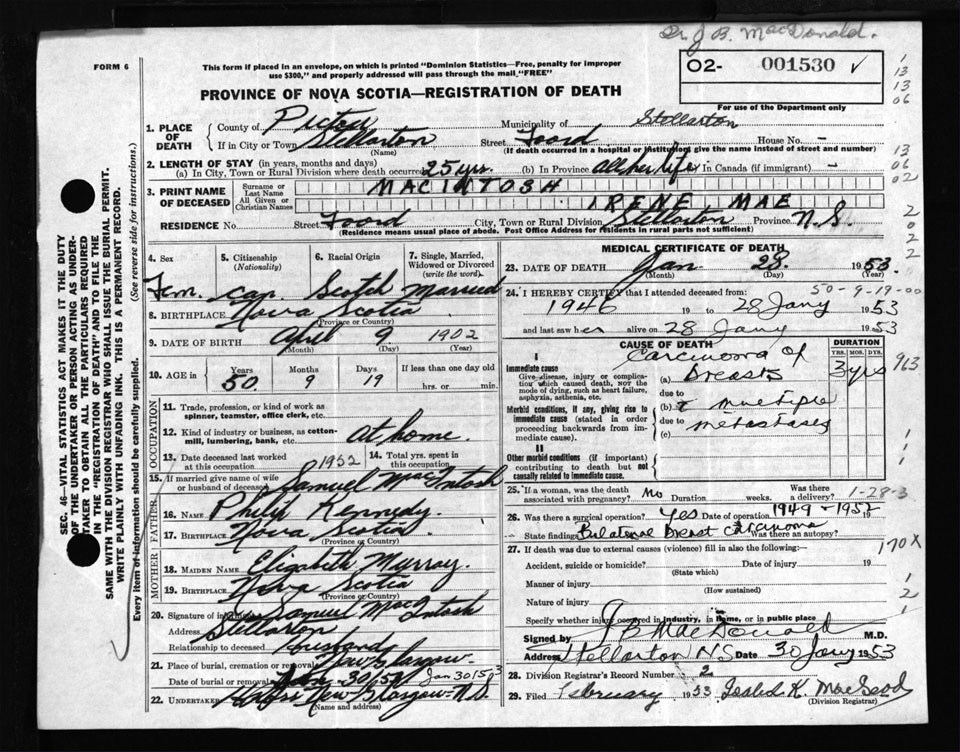 Dr. J B. MacDonald.
FORM 6
This form if placed in an envelope, on which is printed "Dominion Statistics—Free, penalty for improper
use $300," and properly addressed will pass through the mail "FREE"
02- 001530 ✓
PROVINCE OF NOVA SCOTIA—REGISTRATION OF DEATH
For use of the Department only
1. PLACE OF DEATH
County of Pictou Municipality of Stellarton
If in City or Town Stellarton Street Foord House No. –
(Name) (If death occurred in a hospital or institution give the name instead of street and number)
2. LENGTH OF STAY (in years, months and days)
(a) In City, Town or Rural Division where death occurred 25 yrs. (b) In Province all her life In Canada (if immigrant) –
3. PRINT NAME OF DECEASED
Surname or Last Name MACINTOSH
All Given or Christian Names IRENE MAE
RESIDENCE No. Street Foord City, Town or Rural Division Stellarton Province N.S.
(Residence means usual place of abode. Post Office Address for residents in rural parts not sufficient)
4. Sex 5. Citizenship (Nationality) 6. Racial Origin 7. Single, Married, Widowed or Divorced (write the word)
Fem. Can. Scotch Married
8. BIRTHPLACE Nova Scotia
(Province or Country)
9. DATE OF BIRTH April 9 1902
(Month) (Day) (Year)
10. AGE in Years Months Days If less than one day old
50 9 19 hrs. or min.
OCCUPATION
11. Trade, profession, or kind of work as spinner, teamster, office clerk, etc.
12. Kind of industry or business, as cotton-mill, lumbering, bank, etc. At home.
13. Date deceased last worked at this occupation 1952 14. Total yrs. spent in this occupation
15. If married give name of wife or husband of deceased Samuel MacIntosh
FATHER
16. NAME Philip Kennedy.
17. BIRTHPLACE Nova Scotia
(Province or Country)
MOTHER
18. MAIDEN NAME Elizabeth Murray.
19. BIRTHPLACE Nova Scotia
(Province or Country)
20. Signature of Samuel MacIntosh
Address Stellarton
Relationship to deceased Husband
21. Place of burial, cremation or removal New Glasgow
Date of burial or removal Jan 30/53 Jan 30/53
22. UNDERTAKER New Glasgow N.S.
(Name and address)
MEDICAL CERTIFICATE OF DEATH
23. DATE OF DEATH Jan 28. 1953.
(Month) (Day)
50-9-19-00
24. I HEREBY CERTIFY that I attended deceased from:
1946 19 to 28 Jany 1953
and last saw her alive on 28 Jany 1953
CAUSE OF DEATH DURATION
YRS. MOS. DYS.
I
Immediate cause
Give disease, injury or complication which caused death, not the mode of dying, such as heart failure, asphyxia, asthenia, etc.
Carcinoma of
(a) Breasts 3 yrs 963
due to
Morbid conditions, if any, giving rise to immediate cause (stated in order proceeding backwards from immediate cause).
(b) & multiple
due to metastases
(c)
II
Other morbid conditions (if important) contributing to death but not causally related to immediate cause.
25. If a woman, was the death associated with pregnancy? No Duration weeks. Was there a delivery? 1-28-3
26. Was there a surgical operation? Yes Date of operation 1949 - 1952 19
State findings Bilateral breast carcinoma Was there an autopsy?
170X
27. If death was due to external causes (violence) fill in also the following:—
Accident, suicide or homicide? Date of injury 19
(State which)
Manner of injury
(How sustained)
Nature of injury
Specify whether injury occurred in Industry, in home, or in public place
Signed by J B MacDonald M.D.
Address Stellarton N.S Date 30 Jany 1953
28. Division Registrar's Record Number 2
29. Filed February 1953 Isabel K. MacLeod
(Division Registrar)
SEC. 46—VITAL STATISTICS ACT MAKES IT THE DUTY
OF THE UNDERTAKER OR PERSON ACTING AS UNDER-
TAKER TO OBTAIN ALL THE PARTICULARS REQUIRED
IN THE "REGISTRATION OF DEATH" AND TO FILE THE
SAME WITH THE DIVISION REGISTRAR WHO SHALL ISSUE THE BURIAL PERMIT.
WRITE PLAINLY WITH UNFADING INK. THIS IS A PERMANENT RECORD.
Every item of information should be carefully supplied. (See reverse side for instructions.)
1
13
13
06
13
06
02
2
0
2
2
1
1
1
1
2
1